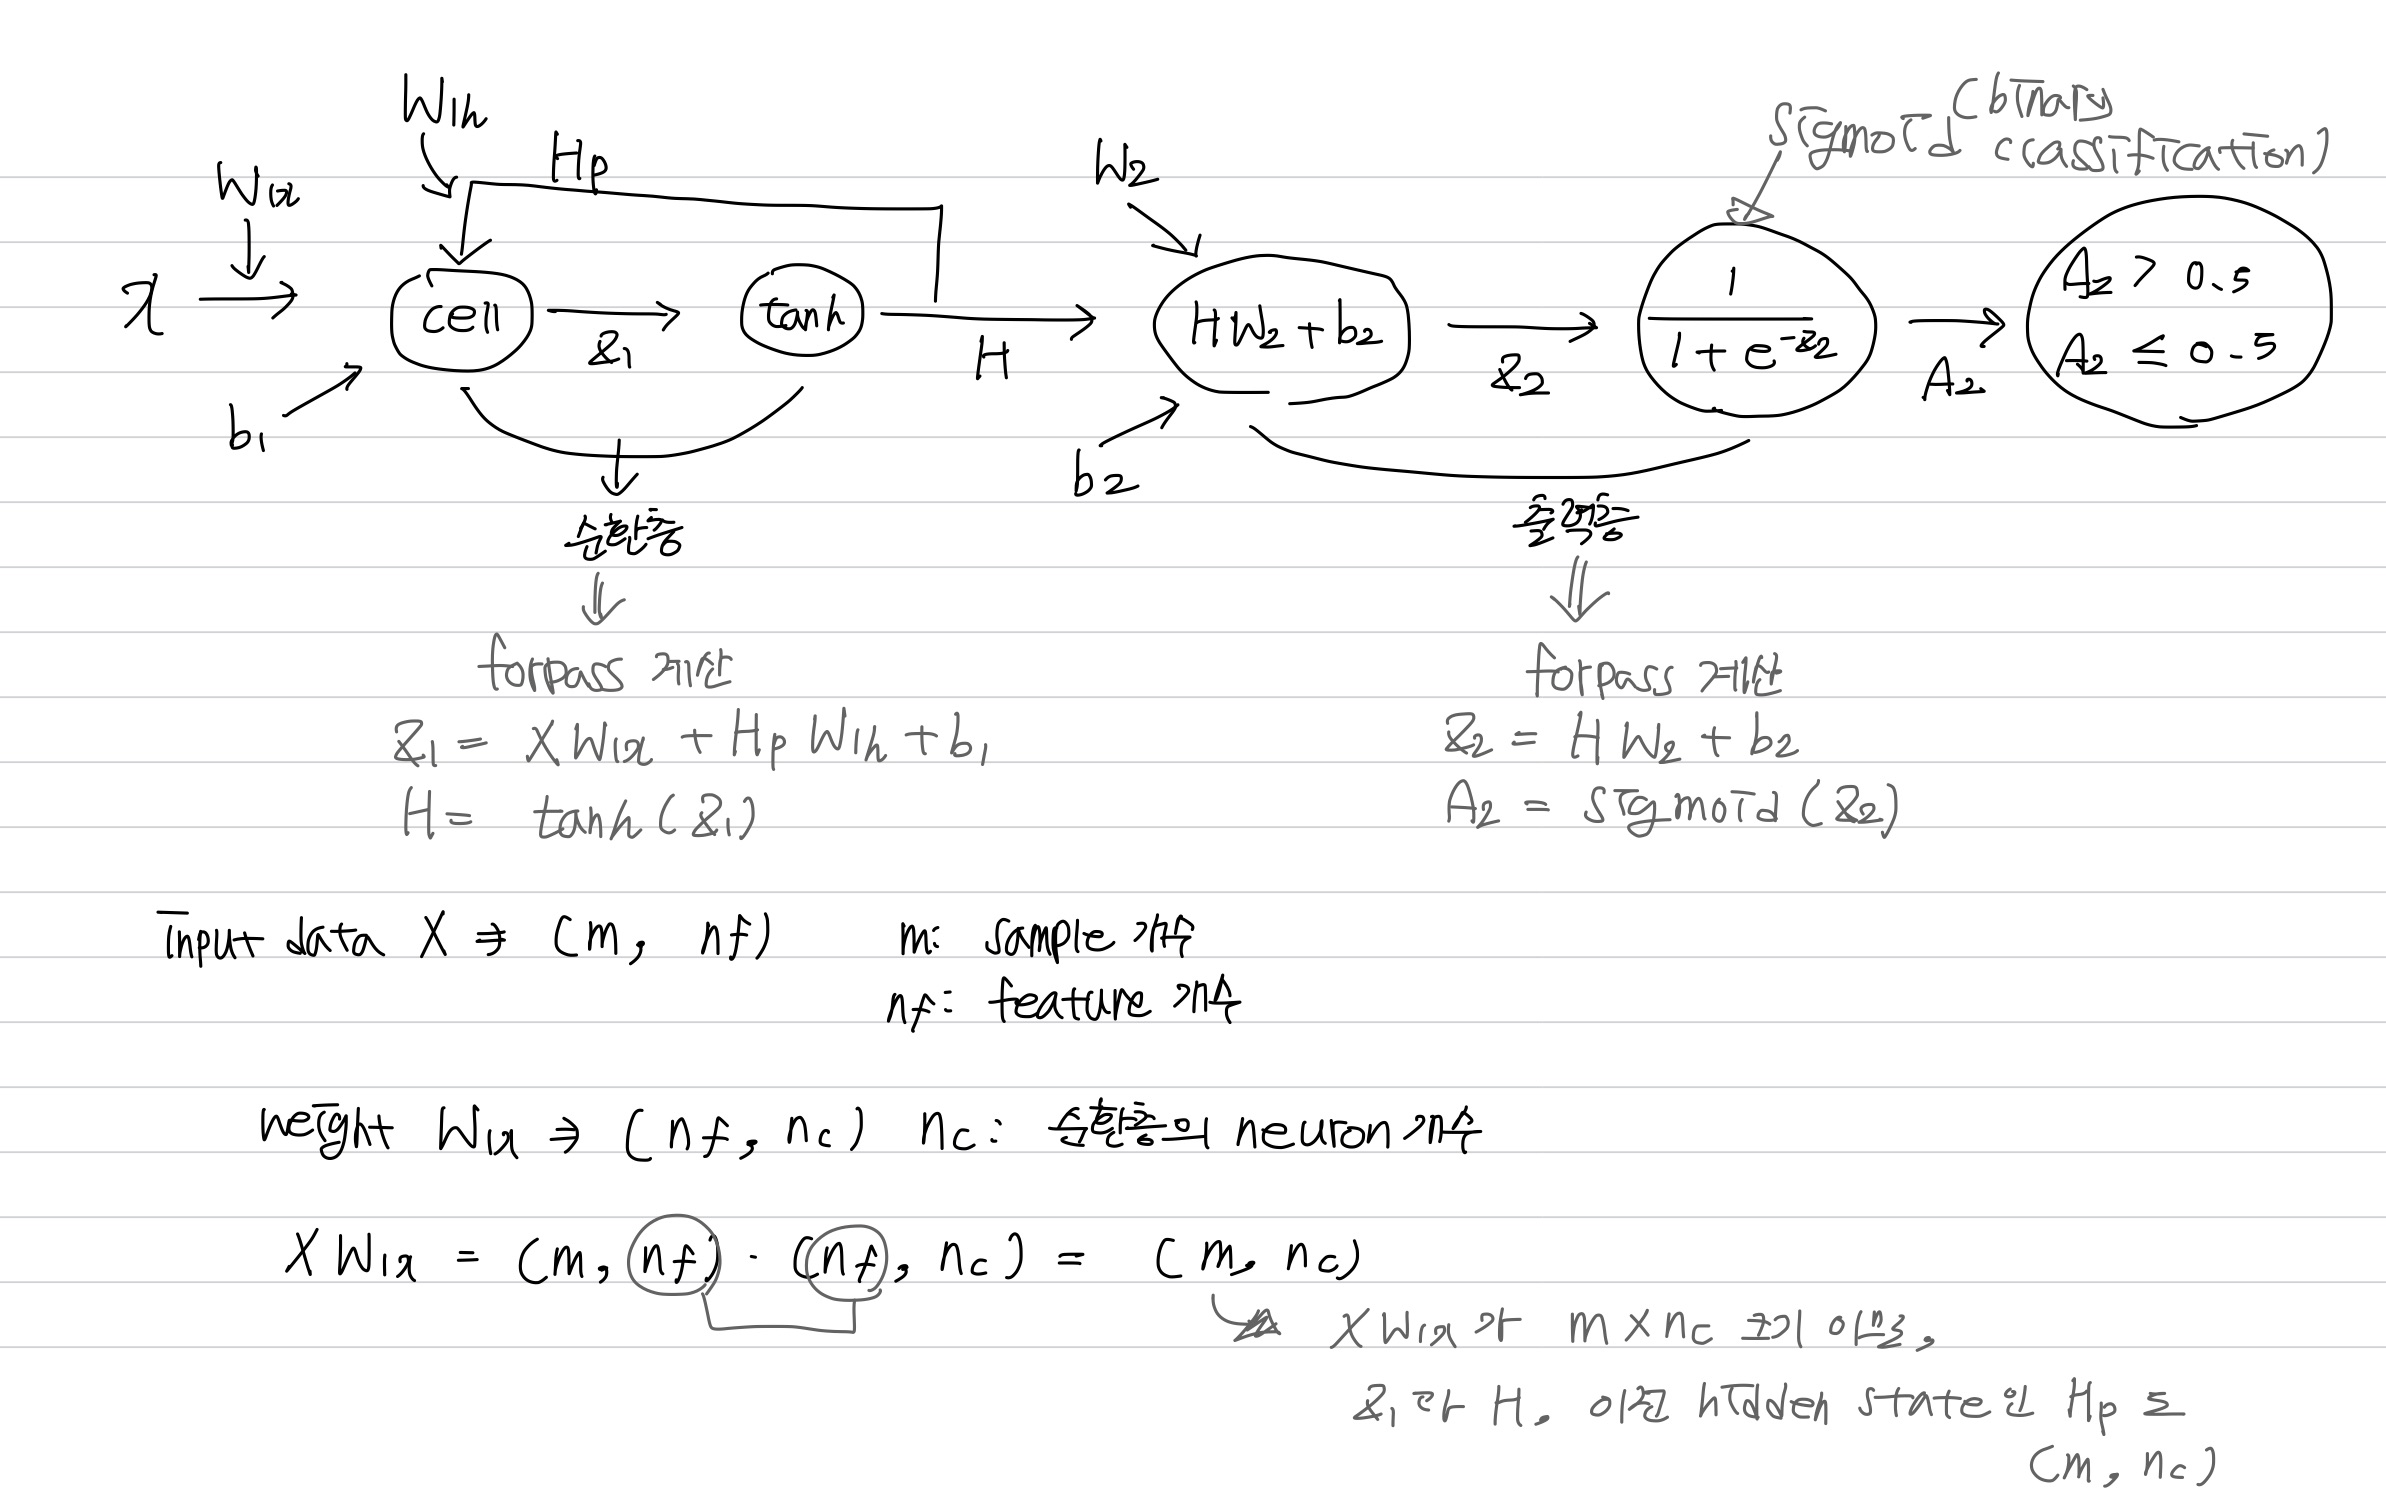 W1h
Hp
W1x
x
b1
cell
z1
tanh
H
W2
HW2 + b2
b2
z2
sigmoid (binary
classification)
1
1 + e^-z2
A2
A2 > 0.5
A2 ≤ 0.5
순환층
출력층
forpass 계산
z1 = XW1x + Hp W1h + b1
H = tanh(z1)
forpass 계산
z2 = HW2 + b2
A2 = sigmoid(z2)
input data X ⇒ (m, nf) m: sample 개수
nf: feature 개수
weight W1x ⇒ (nf, nc) nc: 순환층의 neuron 개수
XW1x = (m, nf) · (nf, nc) = (m, nc)
XW1x가 m×nc 크기 이므로,
z1과 H, 이전 hidden state인 Hp도
(m, nc)